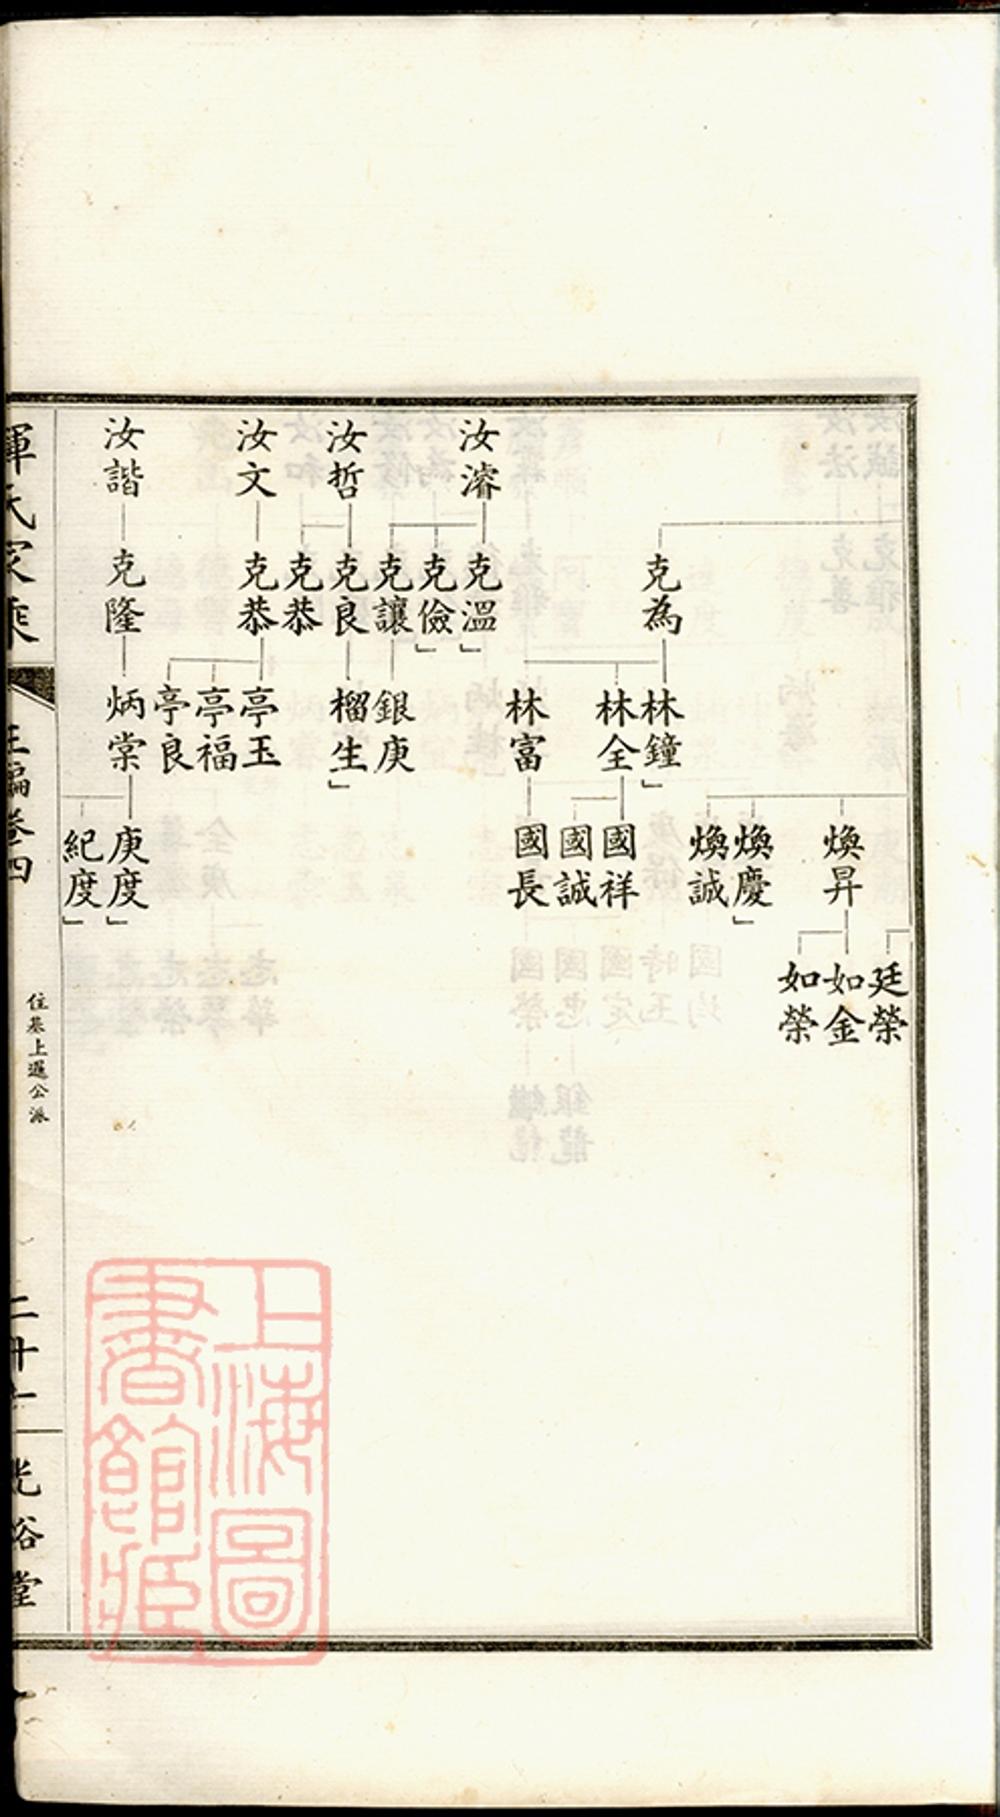 廷榮
煥昇
如金
如榮
煥慶
煥誠
克為
林鐘
林全
國祥
國誠
林富
國長
汝濬
克溫
克儉
克讓
銀庚
汝哲
克良
榴生
克恭
汝文
克恭
亭玉
亭福
亭良
汝諧
克隆
炳棠
庚度
紀度
惲氏家乘
正編卷四
住墓上暹公派
光裕堂
上海圖
書館藏